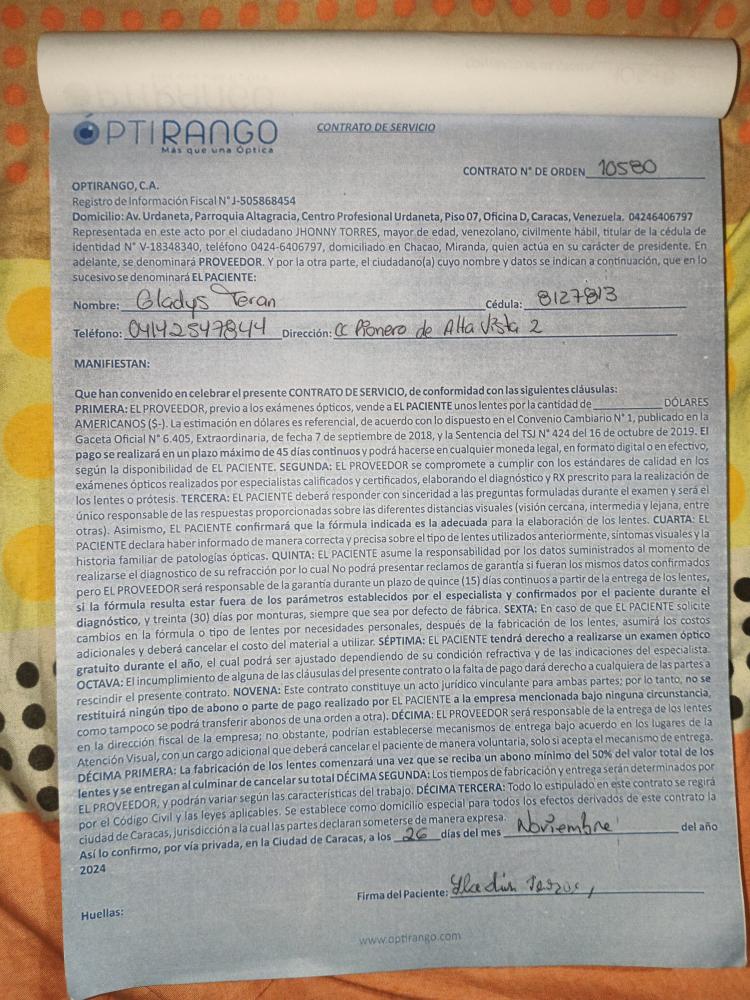 ÓPTIRANGO
Más que una Óptica
CONTRATO DE SERVICIO
CONTRATO N° DE ORDEN 10580
OPTIRANGO, C.A.
Registro de Información Fiscal N° J-505868454
Domicilio: Av. Urdaneta, Parroquia Altagracia, Centro Profesional Urdaneta, Piso 07, Oficina D, Caracas, Venezuela. 04246406797
Representada en este acto por el ciudadano JHONNY TORRES, mayor de edad, venezolano, civilmente hábil, titular de la cédula de
identidad N° V-18348340, teléfono 0424-6406797, domiciliado en Chacao, Miranda, quien actúa en su carácter de presidente. En
adelante, se denominará PROVEEDOR. Y por la otra parte, el ciudadano(a) cuyo nombre y datos se indican a continuación, que en lo
sucesivo se denominará EL PACIENTE:
Nombre: Gladys Teran Cédula: 8127813
Teléfono: 04142547844 Dirección: CC Pionero de Alta Vista 2
MANIFIESTAN:
Que han convenido en celebrar el presente CONTRATO DE SERVICIO, de conformidad con las siguientes cláusulas:
PRIMERA: EL PROVEEDOR, previo a los exámenes ópticos, vende a EL PACIENTE unos lentes por la cantidad de DÓLARES
AMERICANOS ($-). La estimación en dólares es referencial, de acuerdo con lo dispuesto en el Convenio Cambiario N° 1, publicado en la
Gaceta Oficial N° 6.405, Extraordinaria, de fecha 7 de septiembre de 2018, y la Sentencia del TSJ N° 424 del 16 de octubre de 2019. El
pago se realizará en un plazo máximo de 45 días continuos y podrá hacerse en cualquier moneda legal, en formato digital o en efectivo,
según la disponibilidad de EL PACIENTE. SEGUNDA: EL PROVEEDOR se compromete a cumplir con los estándares de calidad en los
exámenes ópticos realizados por especialistas calificados y certificados, elaborando el diagnóstico y RX prescrito para la realización de
los lentes o prótesis. TERCERA: EL PACIENTE deberá responder con sinceridad a las preguntas formuladas durante el examen y será el
único responsable de las respuestas proporcionadas sobre las diferentes distancias visuales (visión cercana, intermedia y lejana, entre
otras). Asimismo, EL PACIENTE confirmará que la fórmula indicada es la adecuada para la elaboración de los lentes. CUARTA: EL
PACIENTE declara haber informado de manera correcta y precisa sobre el tipo de lentes utilizados anteriormente, síntomas visuales y la
historia familiar de patologías ópticas. QUINTA: EL PACIENTE asume la responsabilidad por los datos suministrados al momento de
realizarse el diagnostico de su refracción por lo cual No podrá presentar reclamos de garantía si fueran los mismos datos confirmados
pero EL PROVEEDOR será responsable de la garantía durante un plazo de quince (15) días continuos a partir de la entrega de los lentes,
si la fórmula resulta estar fuera de los parámetros establecidos por el especialista y confirmados por el paciente durante el
diagnóstico, y treinta (30) días por monturas, siempre que sea por defecto de fábrica. SEXTA: En caso de que EL PACIENTE solicite
cambios en la fórmula o tipo de lentes por necesidades personales, después de la fabricación de los lentes, asumirá los costos
adicionales y deberá cancelar el costo del material a utilizar. SÉPTIMA: EL PACIENTE tendrá derecho a realizarse un examen óptico
gratuito durante el año, el cual podrá ser ajustado dependiendo de su condición refractiva y de las indicaciones del especialista.
OCTAVA: El incumplimiento de alguna de las cláusulas del presente contrato o la falta de pago dará derecho a cualquiera de las partes a
rescindir el presente contrato. NOVENA: Este contrato constituye un acto jurídico vinculante para ambas partes; por lo tanto, no se
restituirá ningún tipo de abono o parte de pago realizado por EL PACIENTE a la empresa mencionada bajo ninguna circunstancia,
como tampoco se podrá transferir abonos de una orden a otra). DÉCIMA: EL PROVEEDOR será responsable de la entrega de los lentes
en la dirección fiscal de la empresa; no obstante, podrían establecerse mecanismos de entrega bajo acuerdo en los lugares de la
Atención Visual, con un cargo adicional que deberá cancelar el paciente de manera voluntaria, solo si acepta el mecanismo de entrega.
DÉCIMA PRIMERA: La fabricación de los lentes comenzará una vez que se reciba un abono mínimo del 50% del valor total de los
lentes y se entregan al culminar de cancelar su total DÉCIMA SEGUNDA: Los tiempos de fabricación y entrega serán determinados por
EL PROVEEDOR, y podrán variar según las características del trabajo. DÉCIMA TERCERA: Todo lo estipulado en este contrato se regirá
por el Código Civil y las leyes aplicables. Se establece como domicilio especial para todos los efectos derivados de este contrato la
ciudad de Caracas, jurisdicción a la cual las partes declaran someterse de manera expresa.
Así lo confirmo, por vía privada, en la Ciudad de Caracas, a los 26 días del mes Noviembre del año
2024
Firma del Paciente:
Huellas:
www.optirango.com